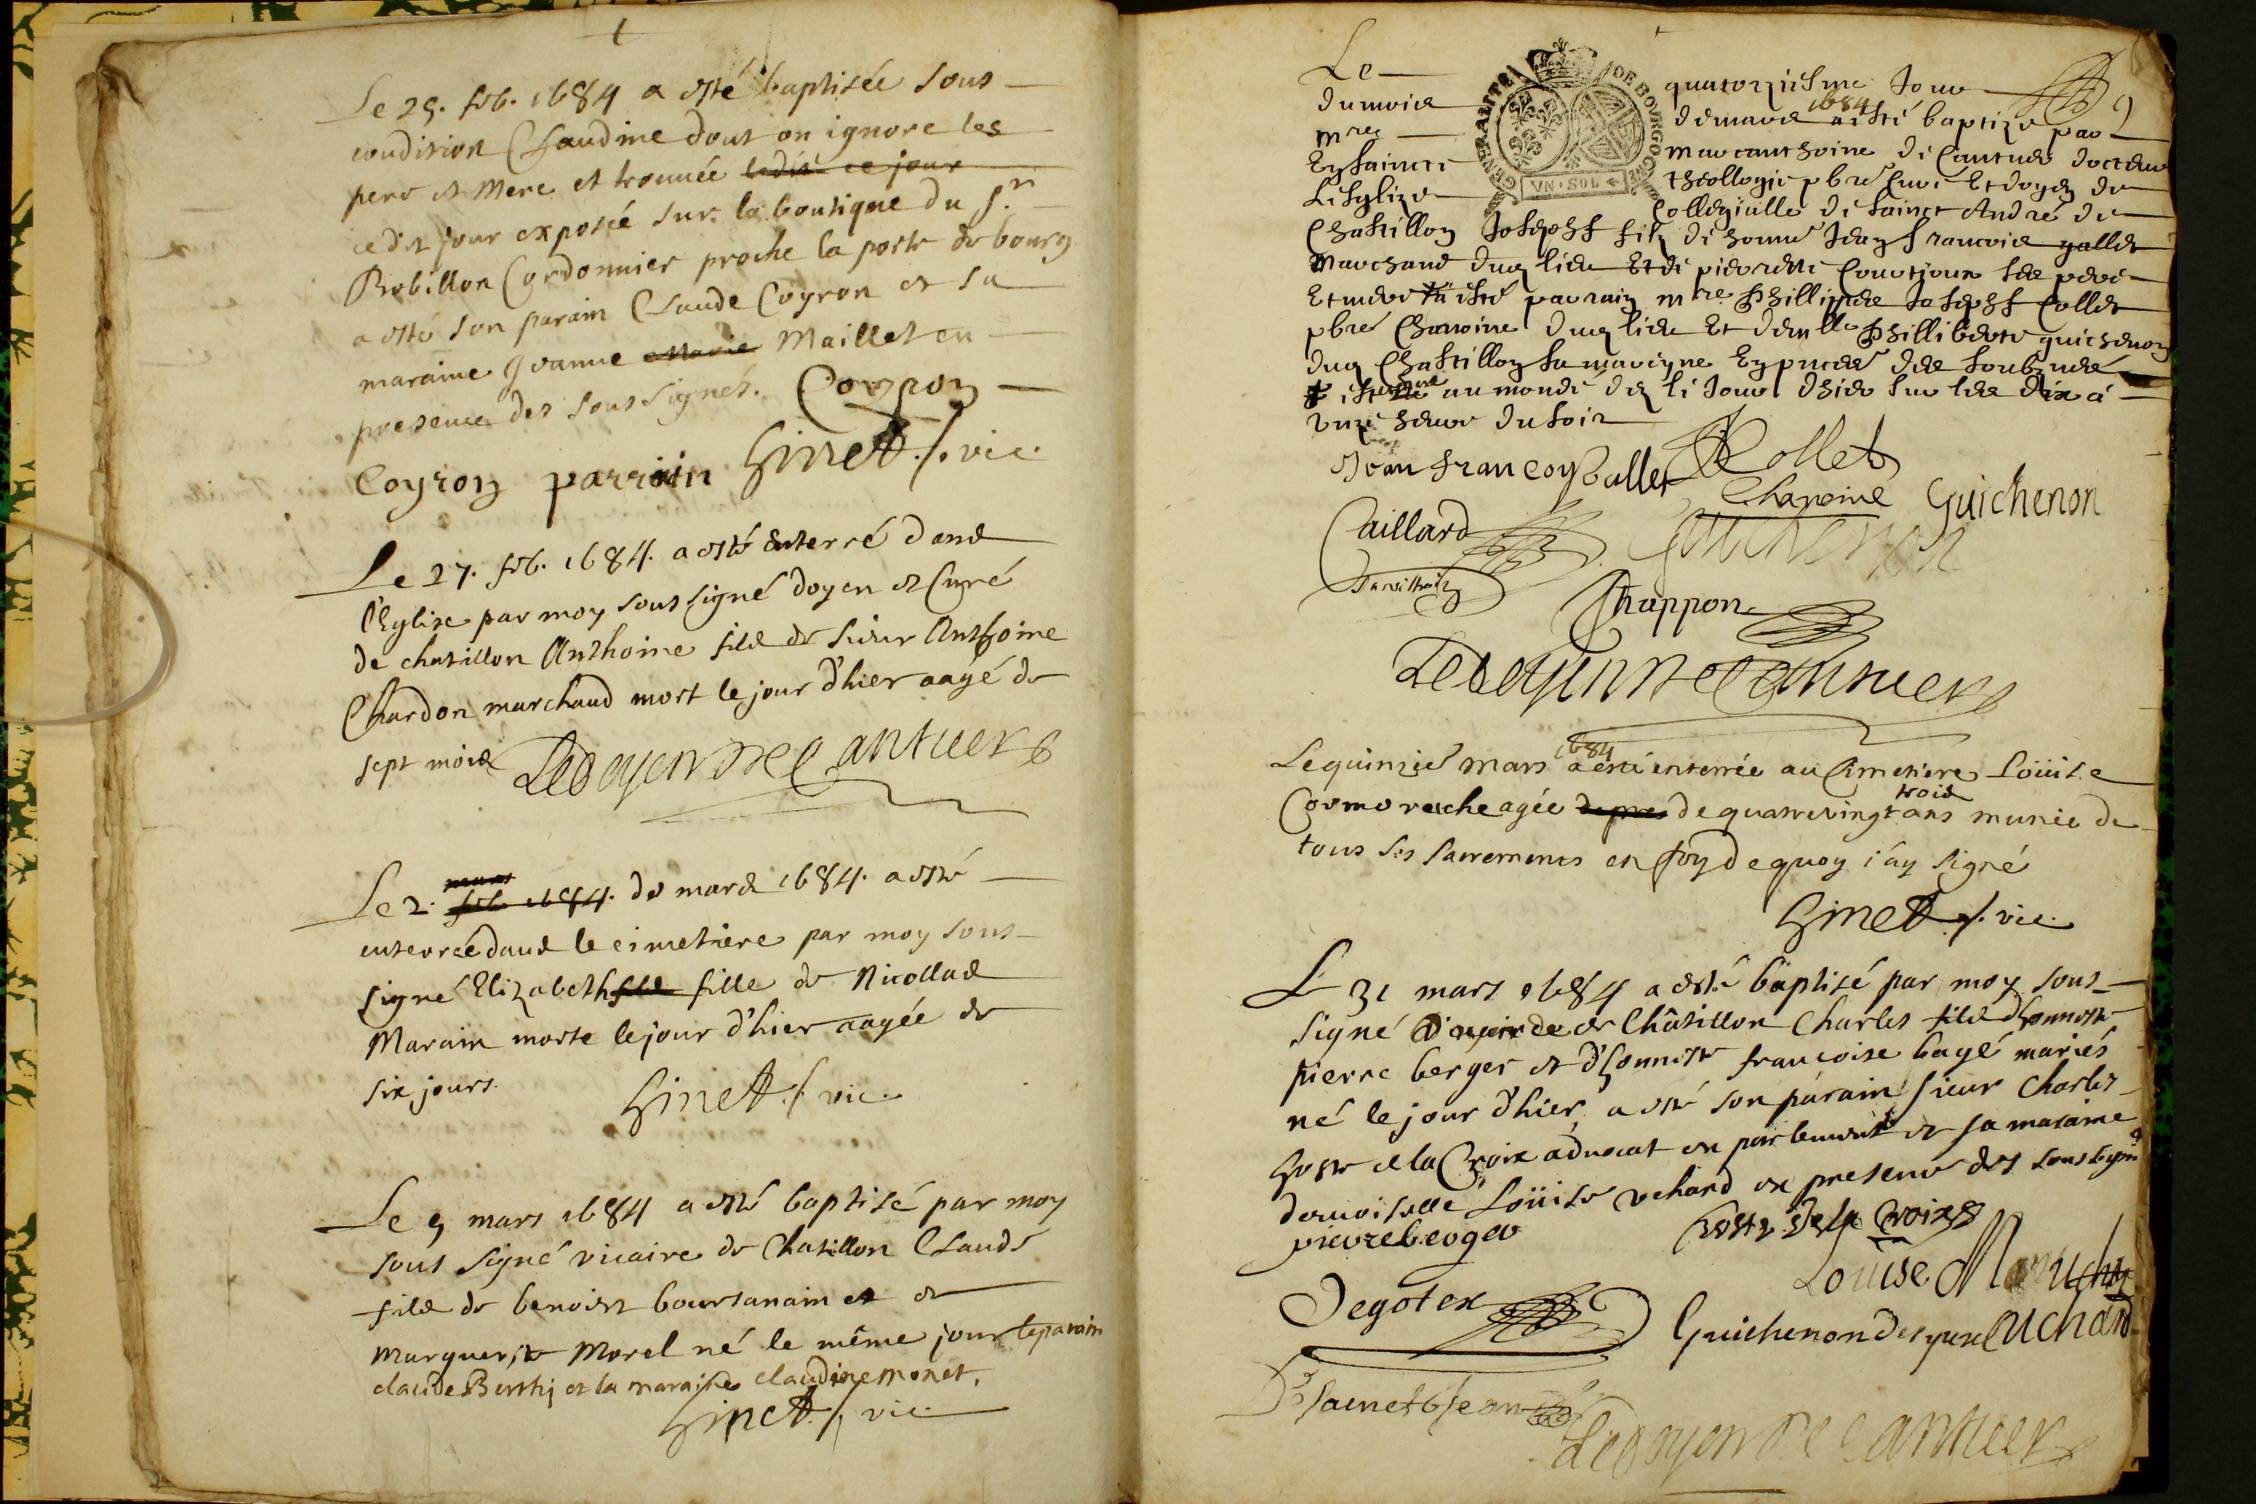 Le 25. feb. 1684 a esté baptisée sous
condition Claudine dont on ignore les
pere et Mere et trouuée ledit ce jour
cedit jour exposée sur la boutique du Sr.
Robillon Cordonnier proche la porte de bourg
a esté son parain Claude Coyron et sa
maraine Jeanne Marie Maillet en
presence des sous signés. Coyron
Coyron parrain Ginet. vic.
Le 27. feb. 1684. a esté enterré dans
l'Eglise par moy sous signé doyen et Curé
de chatillon Anthoine fils de sieur Anthoine
Chardon marchand mort le jour d'hier aagé de
sept mois Ledoyen De Cantuer
mars
Le 2. feb. 1684. de mars 1684. a esté
enterrée dans le cimetiere par moy sous
signé Elizabeth fils fille de Nicollas
Marain morte le jour d'hier aagée de
six jours. Ginet. vic.
Le 9 mars 1684 a esté baptisé par moy
sous signé vicaire de Chatillon Claude
fils de benoist boursanain et de
Marguerite Morel né le même jour le parain
claude Berthj et la maraine claudine monet.
Ginet. vic.
GENERALITE DE BOURGOGNE
VN·SOL
Le quatorziesme Jour
du mois de mars 1684 a esté baptize par
Mre Marcanthoine de Cantuer docteur
En saincte theollogie pbre Curé Et doyen de
Lesglize Collegialle de sainct André de
Chastillon Josephf filz de honne Jean francois gallet
Marchand dud lieu Et de pierrette Courtjoux ses pere
Et mere a esté parrain mre Phillippes Josephf Collet
pbre Chanoine dud lieu Et demlle Philliberte guichenon
dud Chastillon sa mareyne En presence des soubznés
au monde dez le Jour d'hier sur les dix à
unze heure du soir
Jean francoy Gallet Collet
Chanoine Guichenon
Caillard Guichenon
Chappon
Ledoyen De Cantuer
Le quinzie mars 1684 a esté enterrée au Cimetiere Loüise
Cormoreche agée de pres de quatrevingt trois ans munie de
tous ses sacremens en foy de quoy i'ay signé
Ginet. vic.
Le 31 mars 1684 a esté baptisé par moy sous
signé de Châtillon Charles fils d'honneste
pierre berger et d'honneste francoise bagé mariés
né le jour d'hier a esté son parain sieur Charles
hoste de la Croix aduocat en parlement et sa maraine
demoiselle Loüise uchard en presence des soussigné
pierre berger hoste De la Croix
Louise Uchard
Degotex Guichenon Uchard
Ledoyen De Cantuer